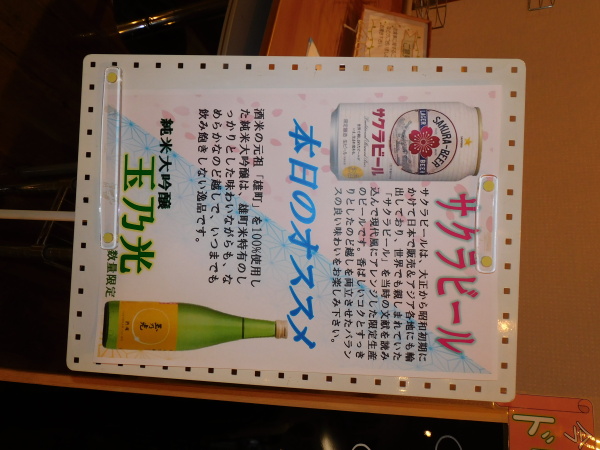 サクラビール
サクラビールは、大正から昭和初期に
かけて日本で販売&アジア各地にも輸
出しており、世界でも親しまれていた
「サクラビール」を当時の文献を読み
込んで現代風にアレンジした限定生産
のビールです。香ばしいコクとすっき
りとしたのど越しを両立させたバラン
スの良い味わいをお楽しみ下さい。
SAKURA-BEER
LAGER BEER
サクラビール
本日のオススメ
酒米の元祖「雄町」を100%使用し
た純米大吟醸は、雄町米特有のし
っかりとした味わいながらも、な
めらかなのど越しで、いつまでも
飲み飽きしない逸品です。
純米大吟醸
玉乃光
数量限定
玉乃光
今
ド